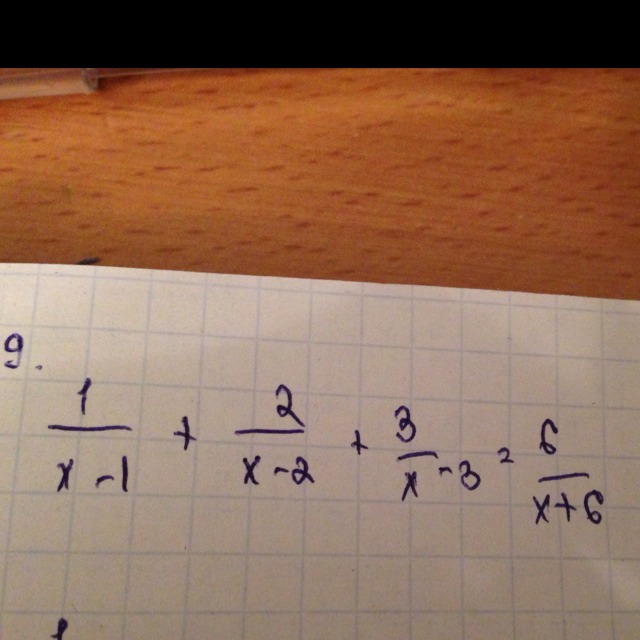 9.
1/(x-1) + 2/(x-2) + 3/x-3 = 6/(x+6)